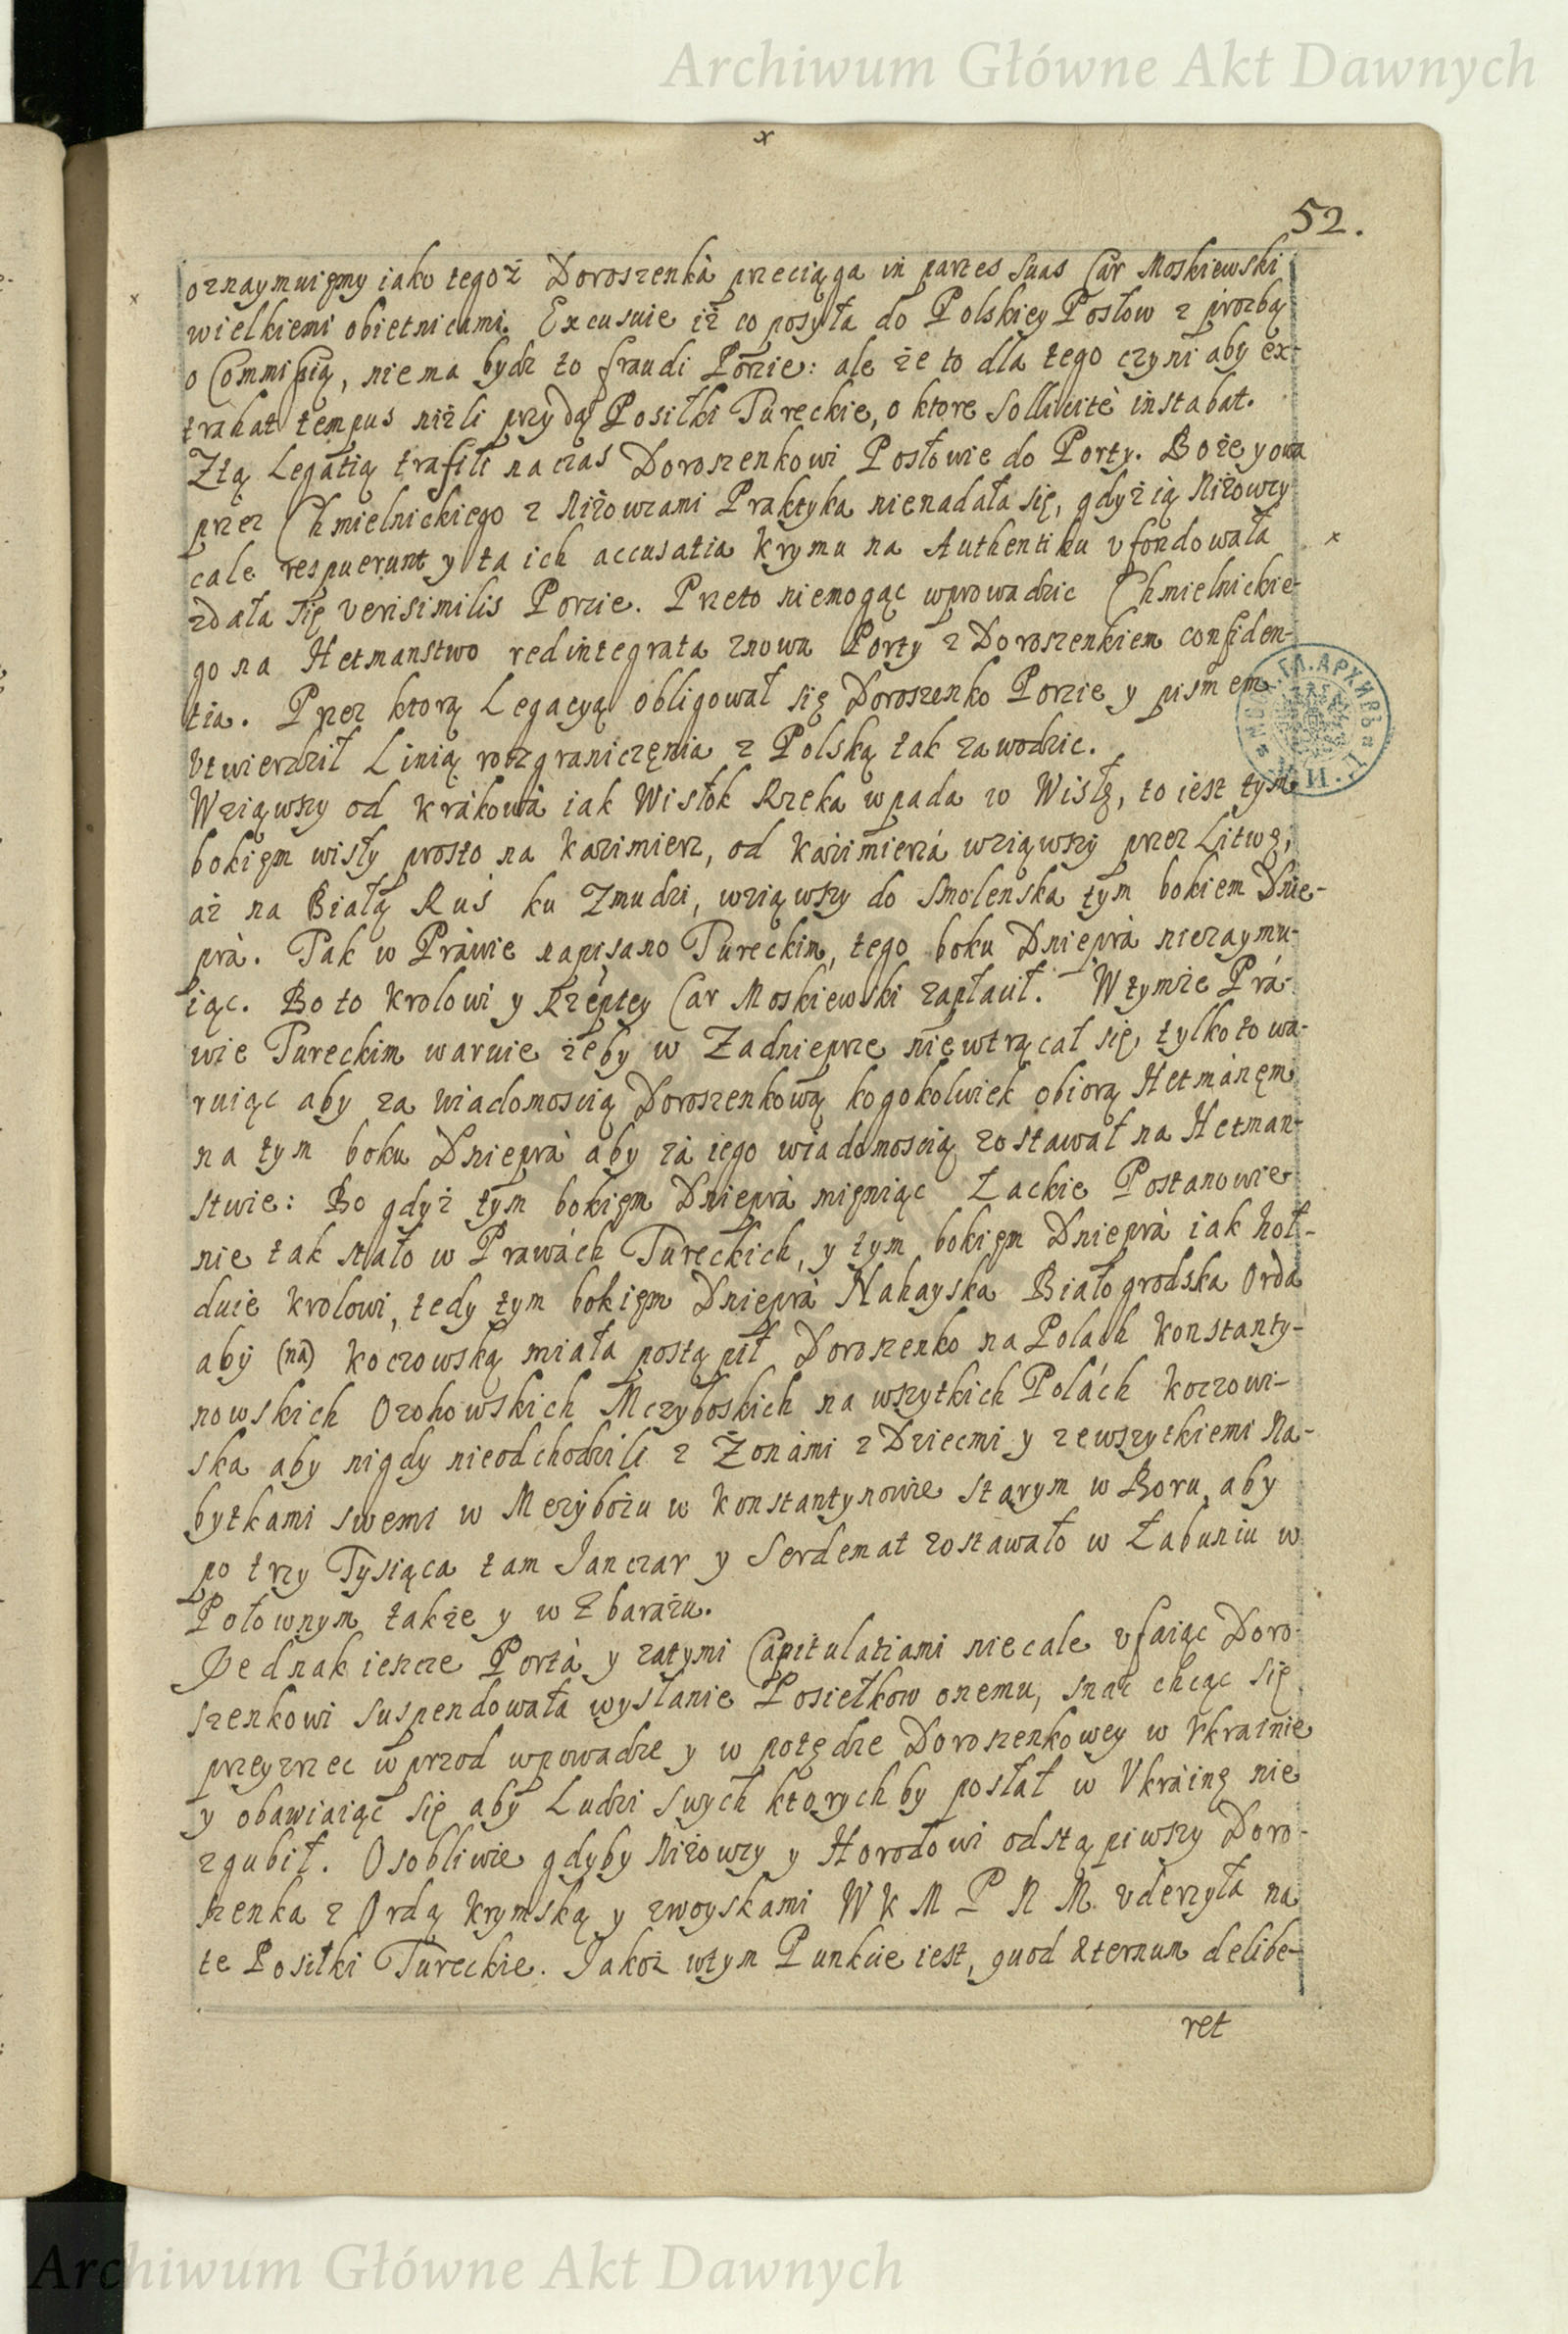 Archiwum Główne Akt Dawnych
x
52.
oznaymuięmy iako tegoż Doroszenkà przeciąga in partes suas Car Moskiewski
wielkiemi obietnicami. Excusuie iż co posyła do Polskiey Posłow z prozbą
o Commissią, niema bydz to fraudi Porcie: ale że to dla tego czyni aby ex-
trahat tempus niżli przydą Posiłki Tureckie, o ktore sollicitè instabat.
Ztą Legatią trafili naczas Doroszenkowi Posłowie do Porty. Bo że y owa
przez Chmielnickiego z Niżowcami Praktyka nienadała się, gdyż ią Niżowcy
cale respuerunt y ta ich accusatia Krymu na Authentiku vfondowała
zdała się verisimilis Porcie. Przeto niemogąc wprowadzic Chmielnickie-
go na Hetmanstwo redintegrata znowu Porty z Doroszenkiem confiden-
tia. Przez ktorą Legacyą obligował się Doroszenko Porcie y pismem
Vtwierdził Linią rozgraniczęnia z Polską tak zawodzic.
Wziąwszy od Krákowà iak Wisłok Rzeka wpada w Wisłę, to iest tym
bokięm wisły prosto na Kazimierz, od Kaźimierzá wziąwszy przez Litwę,
aż na Białą Ruś ku Zmudzi, wziąwszy do Smolenska tym bokiem Dnie-
prà. Tak w Pràwie napisano Tureckim, tego boku Dnieprà niezaymu-
iąc. Bo to Krolowi y Rzeptey Car Moskiewski zapłacił. W tymże Prá-
wie Tureckim waruie żeby w Zadnieprze niewtrącał się, tylko to wa-
ruiąc aby za wiadomoscią Doroszenkową kogokolwiek obiorą Hetmánęm
na tym boku Dnieprà aby zá iego wiadomoscią zostawał na Hetman-
stwie: Bo gdyż tym bokięm Dnieprà mięniąc Lackie Postanowie-
nie tak stało w Prawách Tureckich, y tym bokięm Dnieprà iak hoł-
duie Krolowi, tedy tym bokięm Dnieprà Nahayska Białogrodska Orda
aby (na) Koczowską miała postąpił Doroszenko na Polach Konstanty-
nowskich Ozohowskich Mczyboskich na wszytkich Polách Koczowi-
ska aby nigdy nieodchodzili z Żonámi z Dziecmi y zewszytkiemi Na-
bytkami swemi w Mezybożu w Konstantynowie starym w Boru, aby
po trzy Tysiąca tam Janczar y Serdemat zostawało w Łabuniu w
Połownym także y w Zbarażu.
Jednak ieszcze Portà y zatymi Capitulatiami niecale vfaiąc Doro-
szenkowi suspendowała wysłanie Posiełkow onemu, snać chcąc się
przeyzrzec wprzod wpowadze y w potędze Doroszenkowey w Vkrainie
y obawiaiąc się aby Ludzi swych ktorych by posłał w Vkráinę nie
zgubił. Osobliwie gdyby Niżowcy y Horodowi odstąpiwszy Doro-
szenka z Ordą Krymską y zwoyskami W K M P N M vderzyła na
te Posiłki Tureckie. Jakoż wtym Punkcie iest, quod æternum delibe-
ret
Archiwum Główne Akt Dawnych